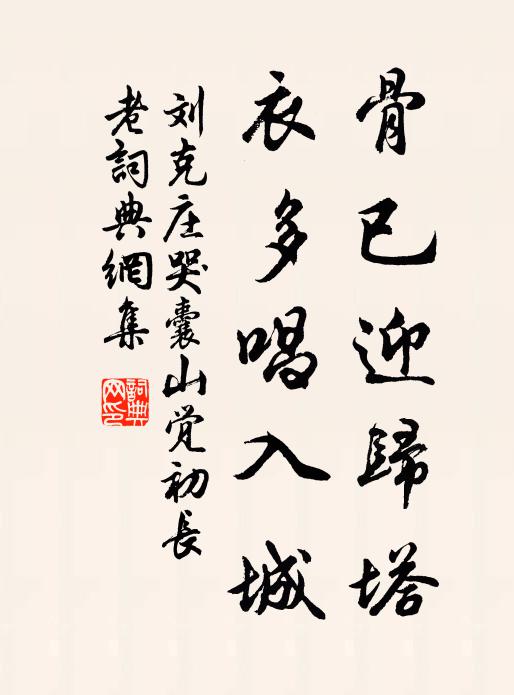 骨已迎歸塔
衣多唱入城
刘克庄哭囊山觉初長
老詞典網集
詞典
网印